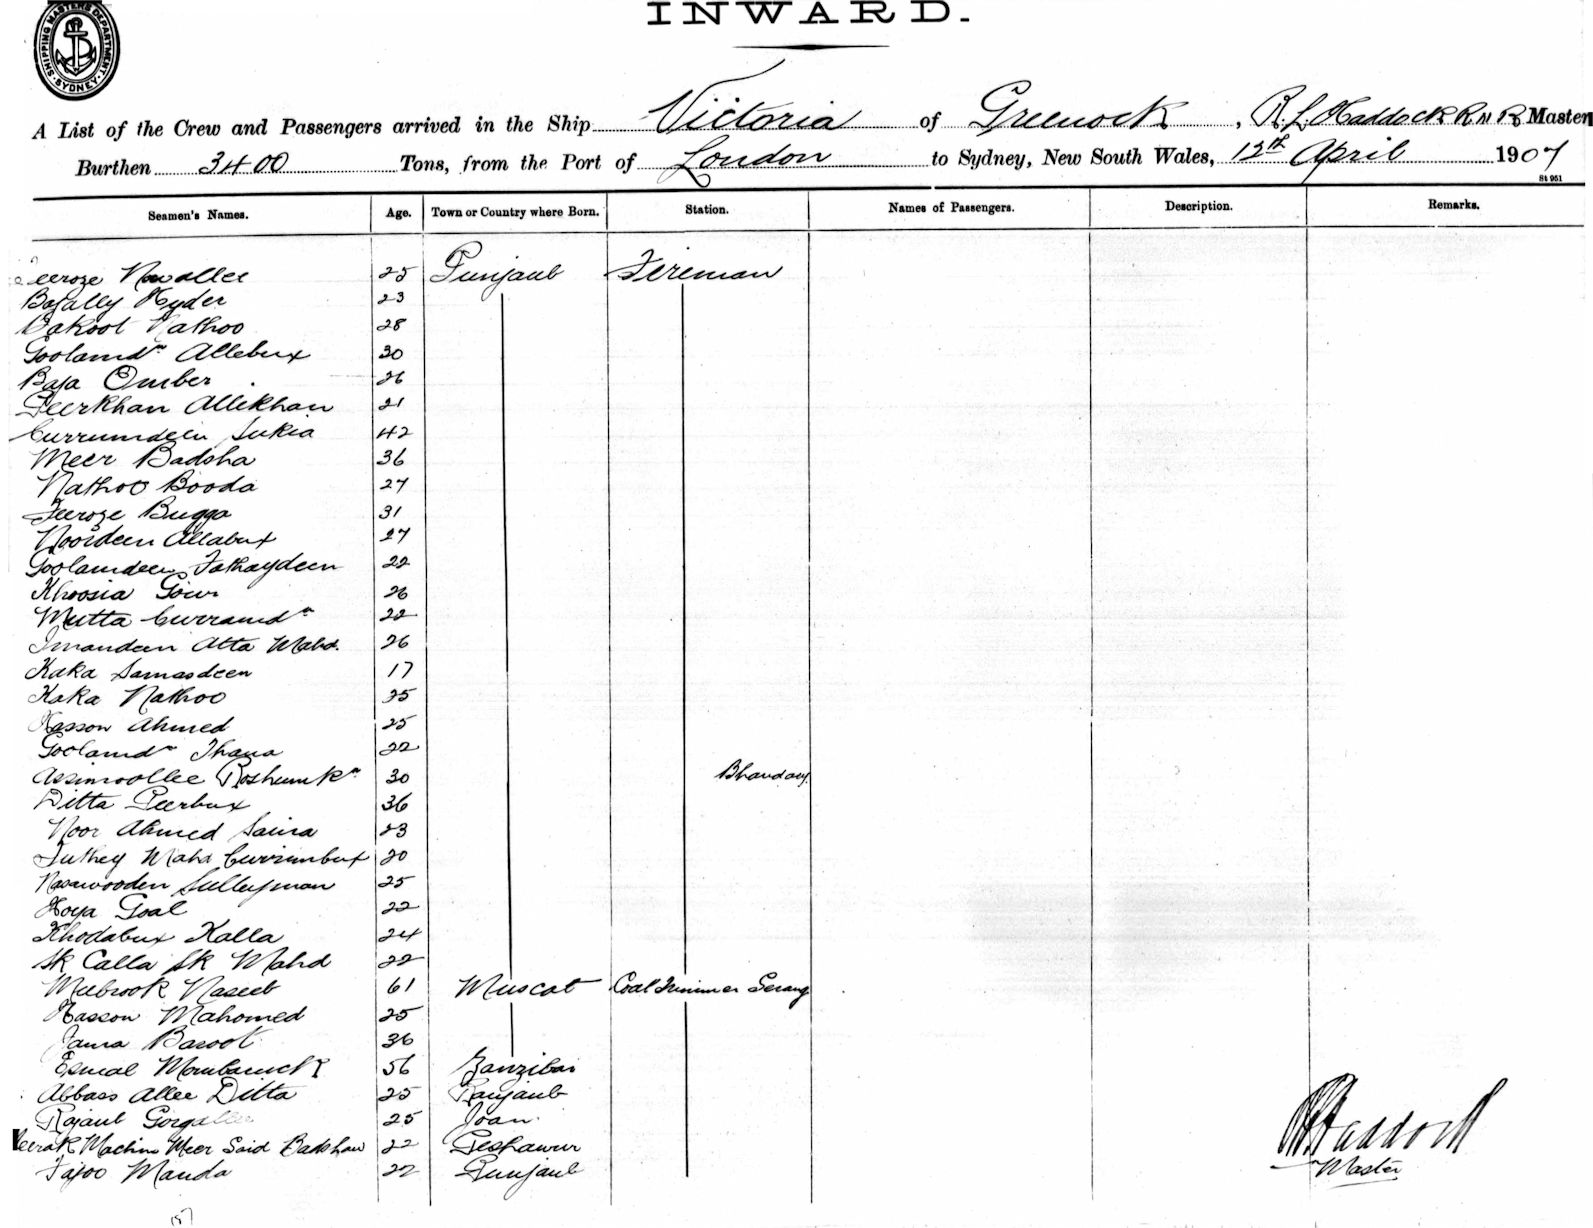 INWARD.
SHIPPING MASTERS DEPARTMENT SYDNEY
A List of the Crew and Passengers arrived in the Ship Victoria of Greenock, R. L. Haddock R N R Master
Burthen 3400 Tons, from the Port of London to Sydney, New South Wales, 12th April 1907
St 951
Seamen's Names. Age. Town or Country where Born. Station. Names of Passengers. Description. Remarks.
Nowallee 25 Punjaub Fireman
Hyder 23
Nathoo 28
Goolamdn Allebux 30
Baja Omber 26
Peerkhan Allikhan 21
Currumdeen Sukia 42
Meer Badsha 36
Nathoo Booda 27
Feeroze Bugga 31
Noordeen Allabux 27
Goolamdeen Fathaydeen 22
Khoosia 26
Mutta Curramdn 22
Imandeen Atta Mahd. 26
Kaka Samasdeen 17
Kaka Nathoo 25
Hasson Ahmed 25
Goolamdn Thana 22
Assimoollee 30 Bhandary
Ditta Peerbux 36
Noor Ahmed 23
Futhey Mahd Currimbux 20
Sulleyman 25
Goal 22
Khodabux Kalla 24
Sk Calla Sk Mahd 22
Mubrook Naseeb 61 Muscat Coal Trimmer Serang
Hasson Mahomed 25
Jama Baroot 36
Esmal 56 Zanzibar
Abbass Allee Ditta 25 Punjaub
Rajaul 25
Machin Meer Said Badshaw 22 Peshawur
Manda 22 Punjaub
Haddock
Master
187